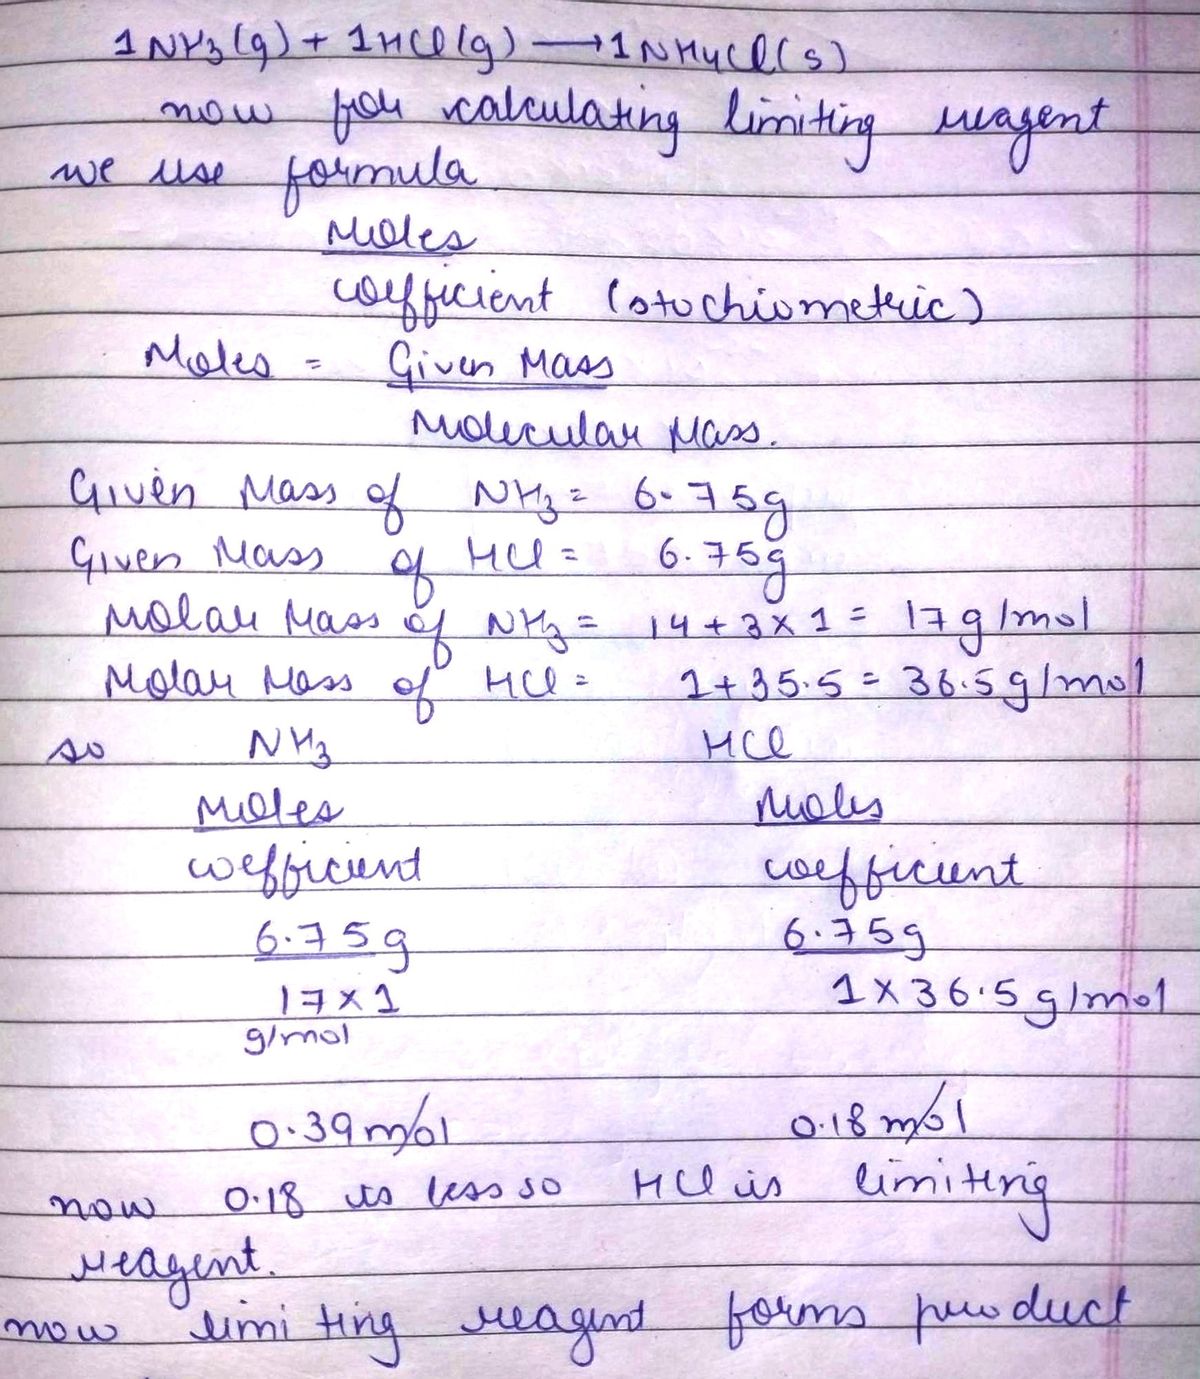 1NH3(g) + 1HCl(g) ⟶ 1NH4Cl(s)
now for calculating limiting reagent
we use formula
Moles
coefficient (stochiometric)
Moles = Given Mass
Molecular Mass.
Given Mass of NH3 = 6.75g
Given Mass of HCl = 6.75g
Molar Mass of NH3 = 14+3×1 = 17g/mol
Molar Mass of HCl = 1+35.5 = 36.5g/mol
so NH3 HCl
Moles Moles
coefficient coefficient
6.75g 6.75g
17×1 1×36.5g/mol
g/mol
0.39 mol 0.18 mol
now 0.18 is less so HCl is limiting
reagent.
now limiting reagent forms product